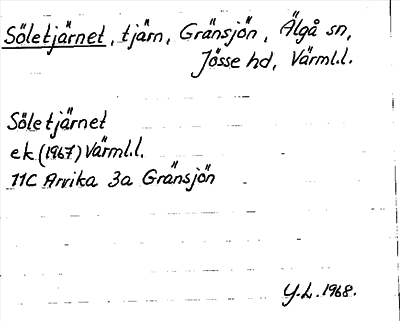 Söletjärnet, tjärn, Gränsjön, Älgå sn,
Jösse hd, Värml.l.
Söletjärnet
ek (1967) Värml.l.
11C Arvika 3a Gränsjön
Y.L. 1968.